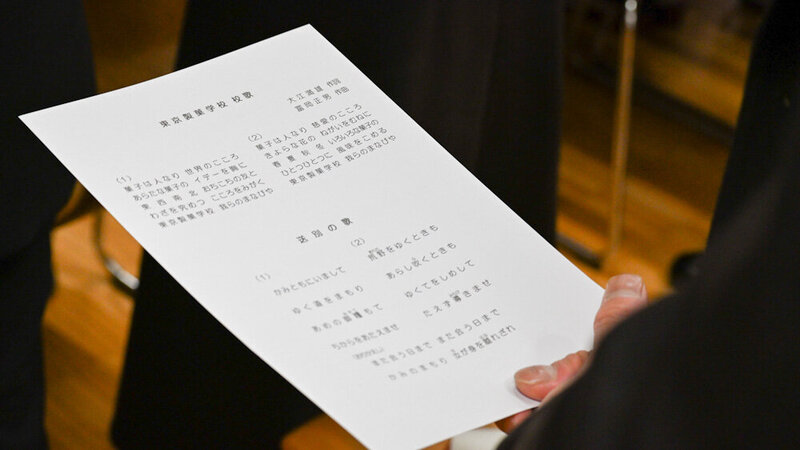 東京製菓学校 校歌
大江満雄 作詞
富岡正男 作曲
(1)
菓子は人なり 世界のこころ
あらたな菓子の イデーを胸に
東西南北 おちこちの友と
わざを究めつ こころをみがく
東京製菓学校 我らのまなびや
(2)
菓子は人なり 慈愛のこころ
きよらな花の ねがいをむねに
春夏秋冬 いろいろな菓子の
ひとつひとつに 風味をこめる
東京製菓学校 我らのまなびや
送別の歌
(1)
かみともにいまして
ゆく道をまもり
あめの御糧もて
ちからをあたえませ
(2)
荒野をゆくときも
あらし吹くときも
ゆくてをしめして
たえず導きませ
また会う日まで また会う日まで
かみのまもり 汝が身を離れざれ